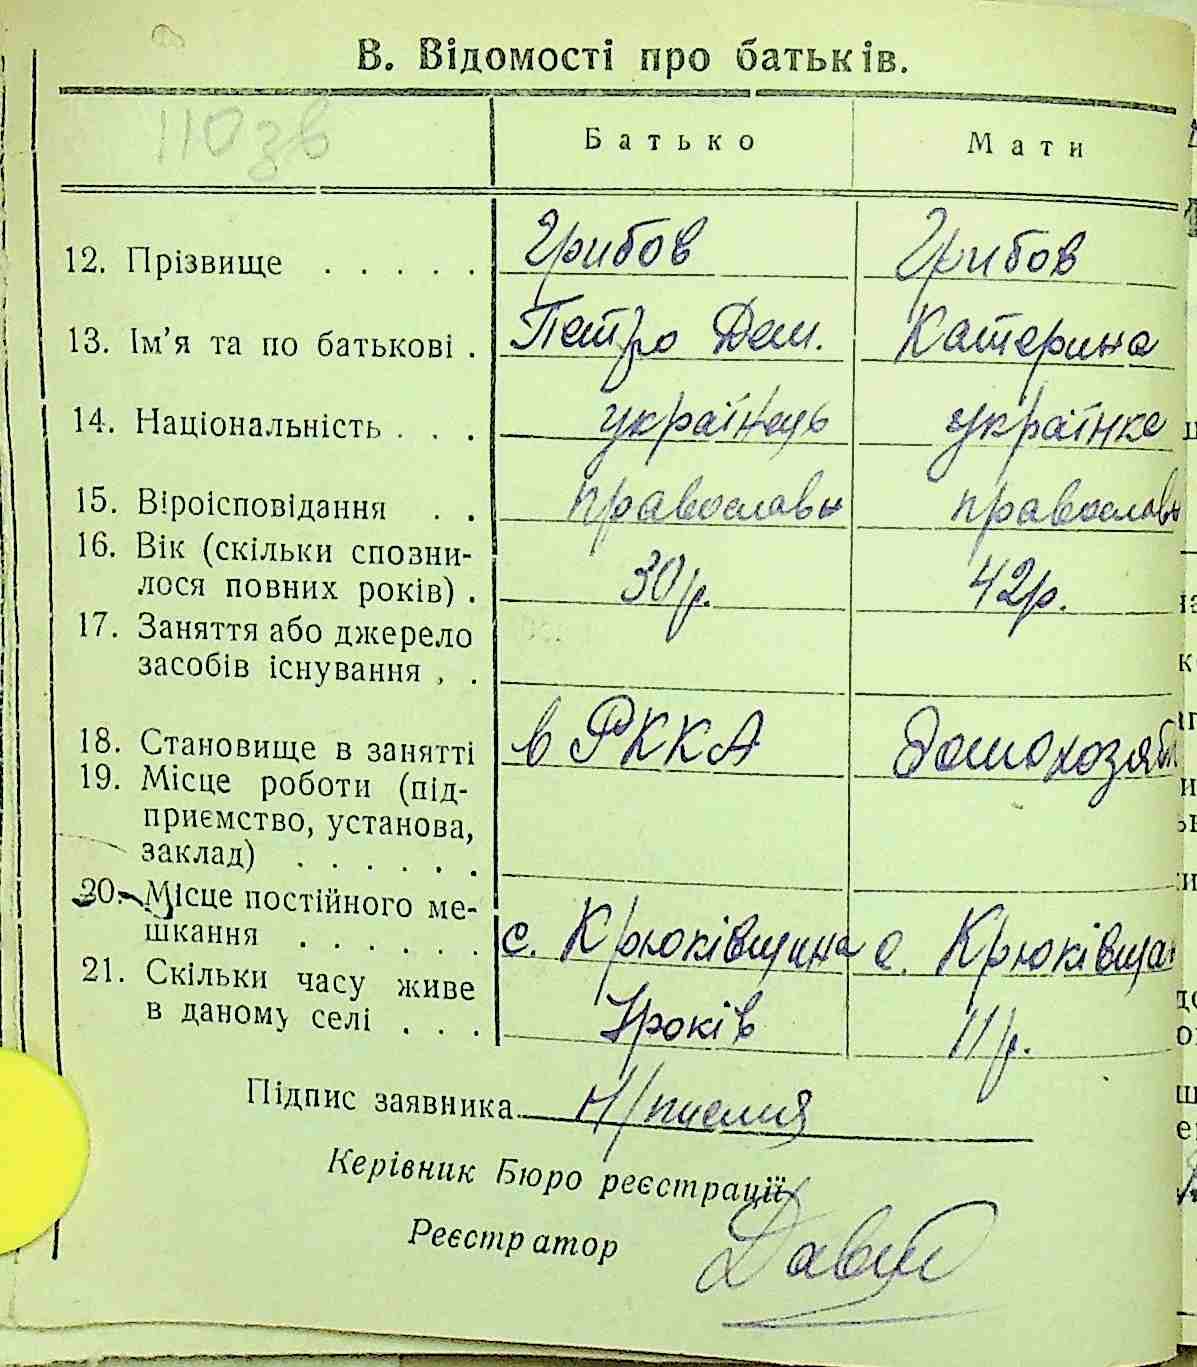 В. Відомості про батьків.
110 зв
Батько Мати
12. Прізвище . . . . . Грибов Грибов
13. Ім’я та по батькові . Петро Дем. Катерина
14. Національність . . . українець українка
15. Віроісповідання . . православн православн
16. Вік (скільки сповни-
лося повних років) . 30р. 42р.
17. Заняття або джерело
засобів існування . .
18. Становище в занятті в РККА домохозяй
19. Місце роботи (під-
приємство, установа,
заклад) . . . . . .
20. Місце постійного ме-
шкання . . . . . . с. Крюківщина с. Крюківщин
21. Скільки часу живе
в даному селі . . . років 11р.
Підпис заявника Н/письмя
Керівник Бюро реєстрації
Реєстратор